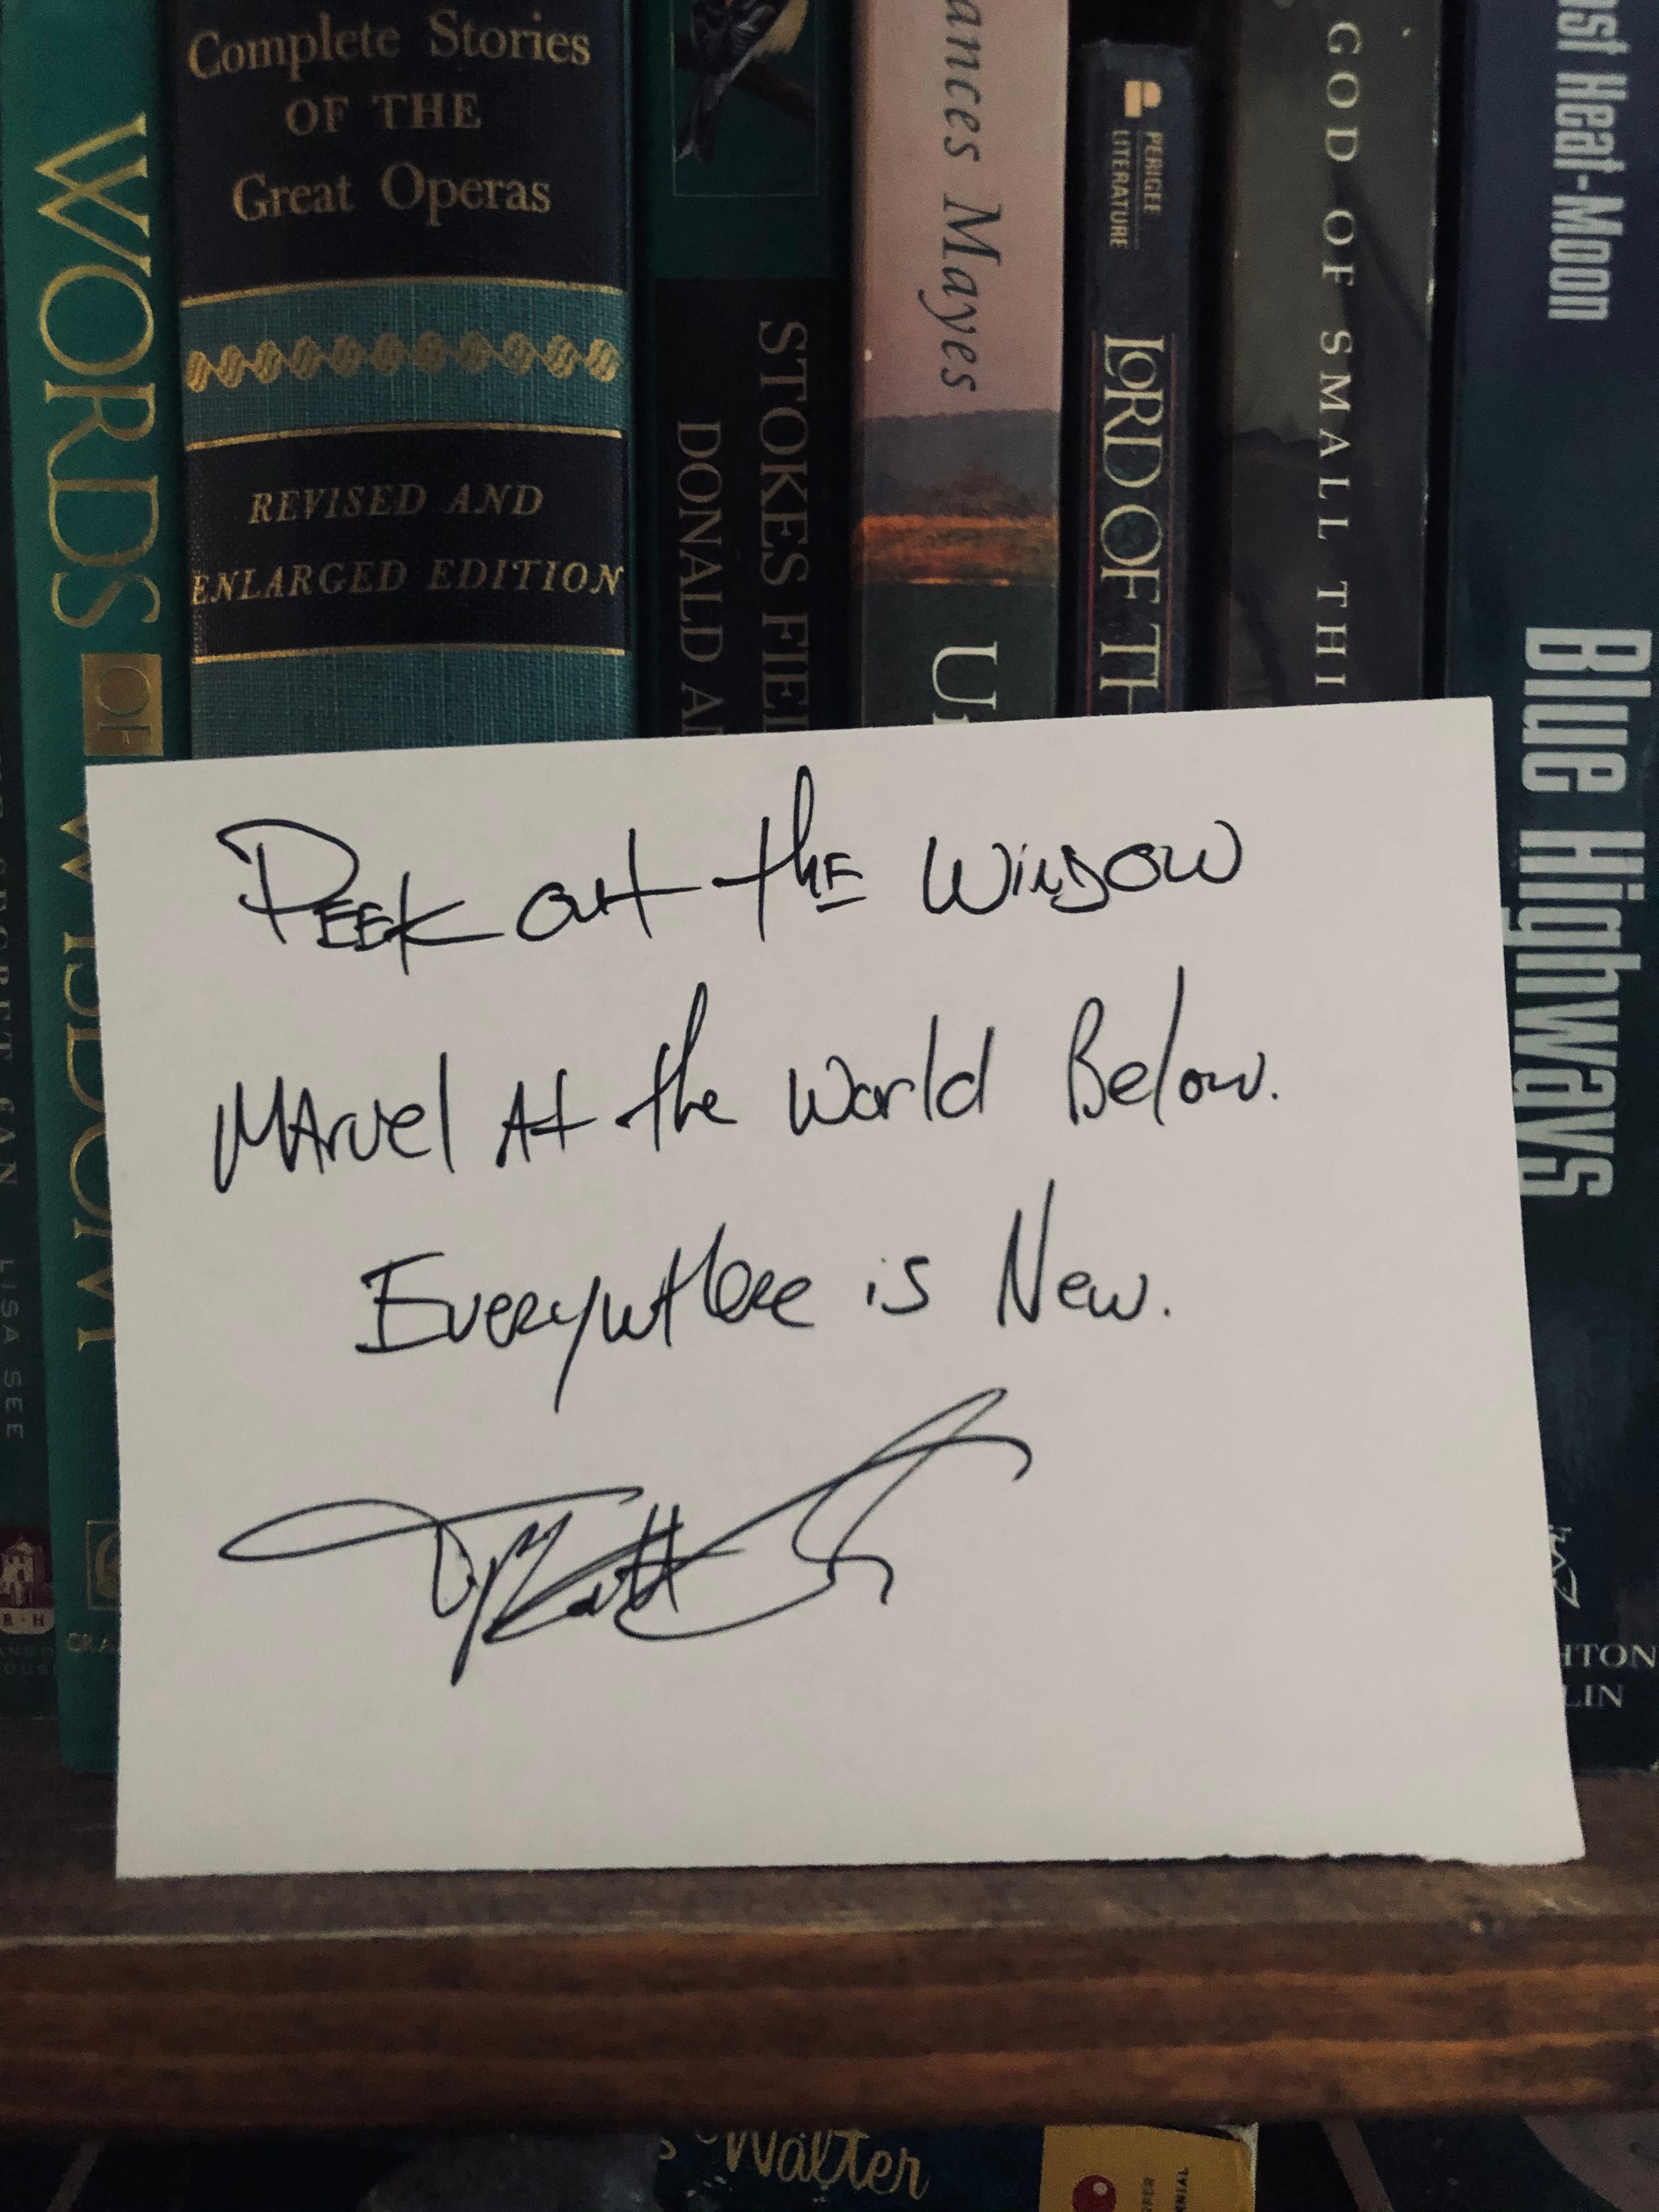 Complete Stories
OF THE
Great Operas
REVISED AND
ENLARGED EDITION
WORDS
OF
WISDOM
LISA SEE
STOKES FIEL
DONALD A
ances Mayes
U
PERIGEE
LITERATURE
LORD OF TH
GOD OF SMALL THI
Heat-Moon
Blue Highways
HTON
LIN
PEEK out the WINDOW
MARvel At the World Below.
EVERYWHERE is New.
R·H
Walter